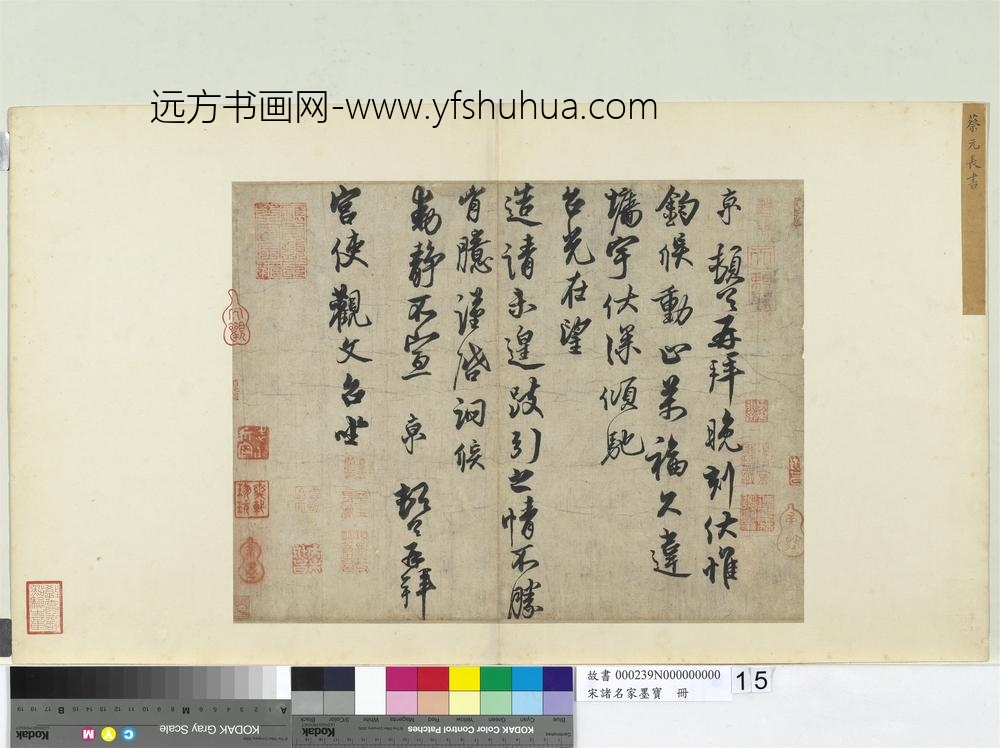 远方书画网-www.yfshuhua.com
蔡元長書
京頓首再拜晚刻伏惟
鈞候動止萬福久違
墉宇伏深傾馳
台光在望
造請未遑跂引之情不勝
肯臆謹啓詞候
動靜不宣 京 頓首再拜
宮使觀文台坐
故書 000239N000000000
宋諸名家墨寶 冊
15
KODAK Gray Scale
Kodak
C Y M
A 1 2 3 4 5 6 M 8 9 10 11 12 13 14 15 B 17 18 19
KODAK Color Control Patches
Kodak
Blue Cyan Green Yellow Red Magenta White 3/Color Black